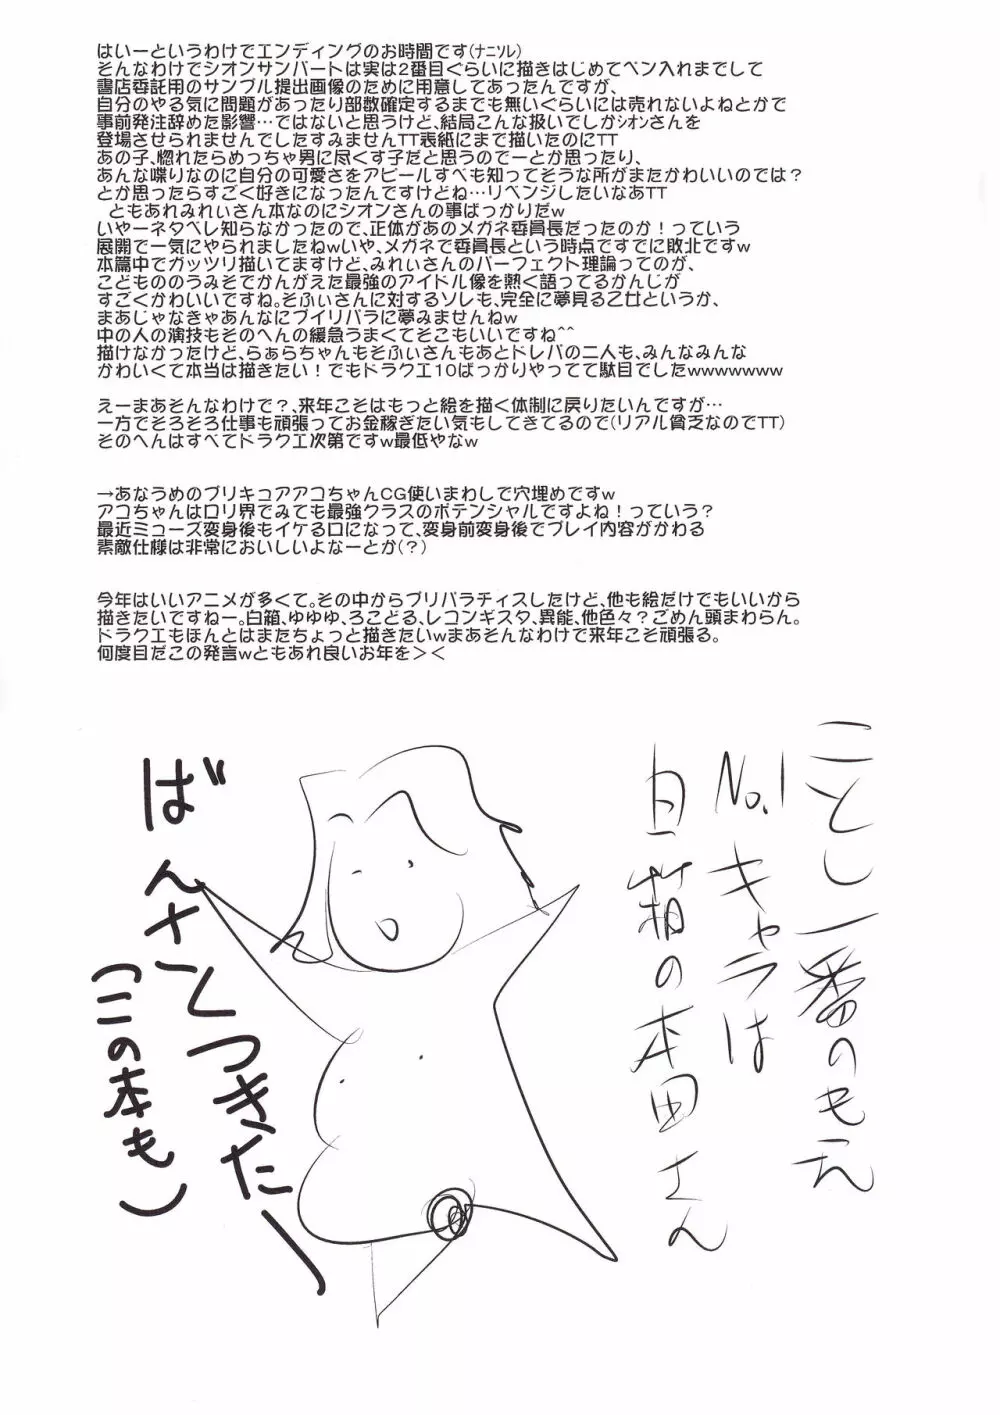 はいーというわけでエンディングのお時間です(ﾅﾆｿﾚ)
そんなわけでシオンサンパートは実は2番目ぐらいに描きはじめてペン入れまでして
書店委託用のサンプル提出画像のために用意してあったんですが、
自分のやる気に問題があったり部数確定するまでも無いぐらいには売れないよねとかで
事前発注辞めた影響…ではないと思うけど、結局こんな扱いでしかｼｵﾝさんを
登場させられませんでしたすみませんTT表紙にまで描いたのにTT
あの子、惚れたらめっちゃ男に尽くす子だと思うのでーとか思ったり、
あんな喋りなのに自分の可愛さをアピールすべも知ってそうな所がまたかわいいのでは？
とか思ったらすごく好きになったんですけどね…リベンジしたいなあTT
ともあれみれぃさん本なのにシオンさんの事ばっかりだw
いやーネタベレ知らなかったので、正体があのメガネ委員長だったのか！っていう
展開で一気にやられましたねwいや、メガネで委員長という時点ですでに敗北ですw
本篇中でガッツリ描いてますけど、みれぃさんのパーフェクト理論ってのが、
こどものうみそでかんがえた最強のアイドル像を熱く語ってるかんじが
すごくかわいいですね。そふぃさんに対するソレも、完全に夢見る乙女というか、
まあじゃなきゃあんなにプイリパラに夢みませんねw
中の人の演技もそのへんの緩急うまくてそこもいいですね^^
描けなかったけど、らぁらちゃんもそふぃさんもあとドレパの二人も、みんなみんな
かわいくて本当は描きたい！でもドラクエ10ばっかりやってて駄目でしたwwwwwww
えーまあそんなわけで？、来年こそはもっと絵を描く体制に戻りたいんですが…
一方でそろそろ仕事も頑張ってお金稼ぎたい気もしてきてるので(リアル貧乏なのでTT)
そのへんはすべてドラクエ次第ですw最低やなw
今年はいいアニメが多くて。その中からプリパラチィスしたけど、他も絵だけでもいいから
描きたいですねー。白箱、ゆゆゆ、ろこどる、レコンギスタ、異能、他色々？ごめん頭まわらん。
ドラクエもほんとはまたちょっと描きたいwまあそんなわけで来年こそ頑張る。
何度目だこの発言wともあれ良いお年を＞＜
ことし一番のもえ
No.1キャラは
白箱の本田さん
ばんさくつきたー
(この本も)